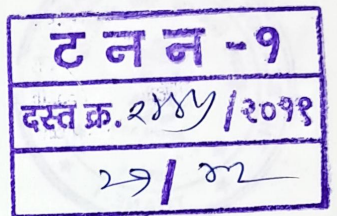 ट न न - १
दस्त क्र. २४४५ / २०११
२१ /